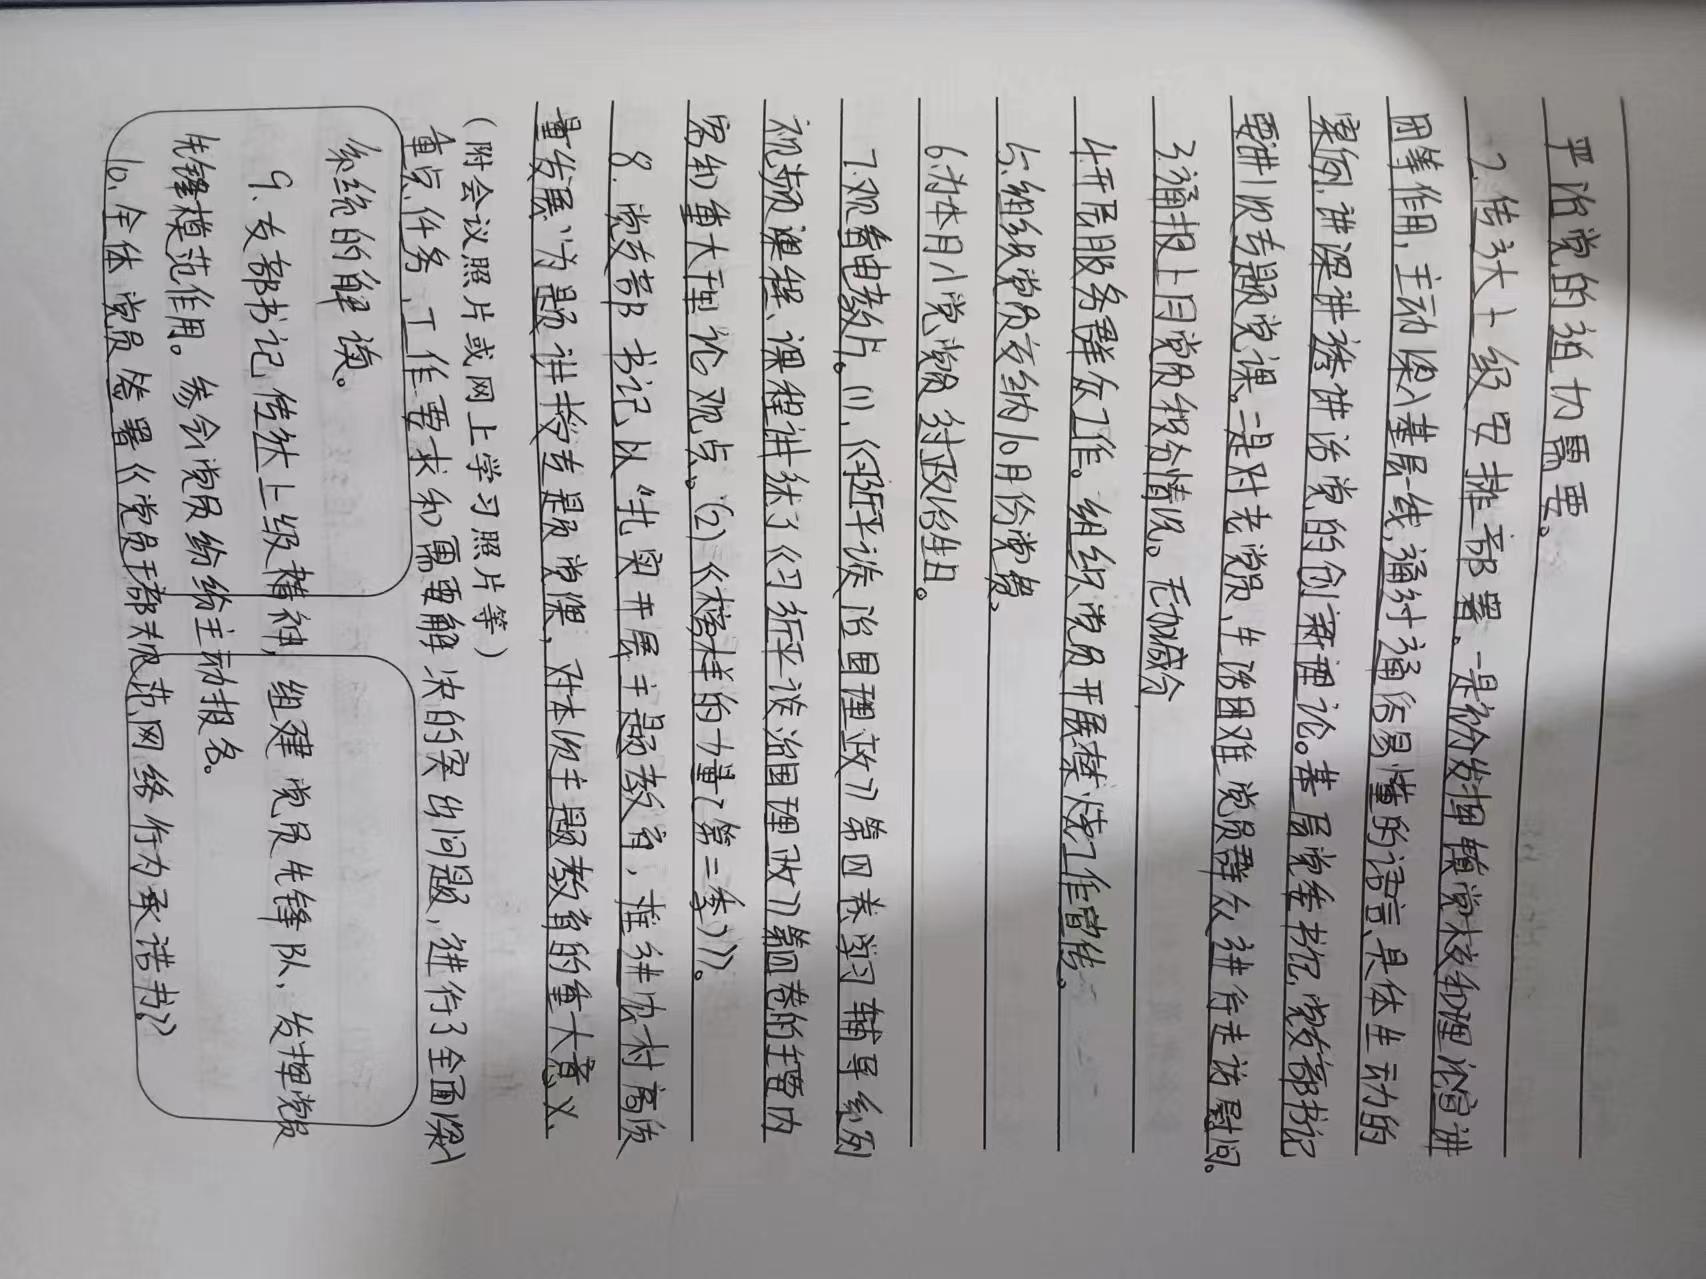 严治党的迫切需要。
2.传达上级安排部署。一是充分发挥镇党校和理论宣讲
团等作用,主动深入基层一线,通过通俗易懂的语言、具体生动的
案例,讲深讲透讲活党的创新理论。基层党委书记、党支部书记
要讲1次专题党课。二是对老党员、生活困难党员群众进行走访慰问。
3.通报上月党员积分情况。无加减分
4.开展服务群众工作。组织党员开展禁烧工作宣传。
5.组织党员交纳10月份党费。
6.为本月入党党员过政治生日。
7.观看电教片。(1)、《习近平谈治国理政》第四卷学习辅导系列
视频课程、课程讲述了《习近平谈治国理政》第四卷的主要内
容和重大理论观点。(2)《榜样的力量(第二季)》。
8.党支部书记以“扎实开展主题教育,推进农村高质
量发展”为题讲授专题党课,对本次主题教育的重大意义、
(附会议照片或网上学习照片等)
重点任务、工作要求和需要解决的突出问题,进行了全面深入
系统的解读。
9.支部书记传达上级精神,组建党员先锋队,发挥党员
先锋模范作用。参会党员纷纷主动报名。
10.全体党员签署《党员干部规范网络行为承诺书》